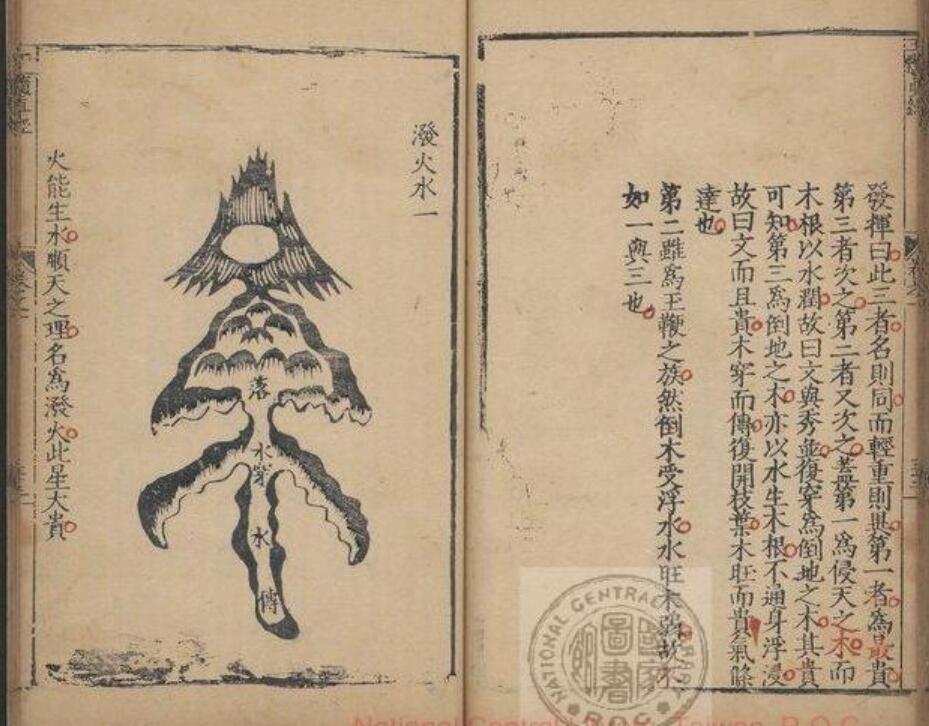 發揮曰此三者名則同而輕重則異第一者爲最貴
第三者次之第二者又次之蓋第一爲侵天之木而
木根以水潤故曰文與秀並復穿爲倒地之木其貴
可知第三爲倒地之木亦以水生木根不通身浮浸
故曰文而且貴木穿而傳復開枝葉木旺而貴氣條
達也
第二雖爲王鞭之族然倒木受浮水水旺木弱故不
如一與三也
潑火水一
落
水穿
水
傳
火能生水順天之理名爲潑火此星大貴
國家圖書館
NATIONAL CENTRAL LIBRARY
R.O.C.